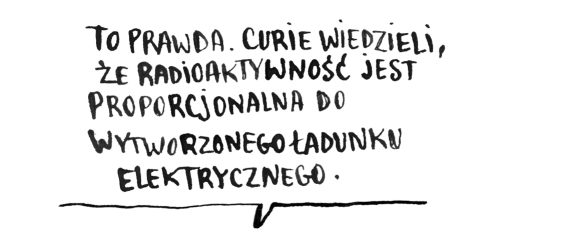 TO PRAWDA. CURIE WIEDZIELI,
ŻE RADIOAKTYWNOŚĆ JEST
PROPORCJONALNA DO
WYTWORZONEGO ŁADUNKU
ELEKTRYCZNEGO.